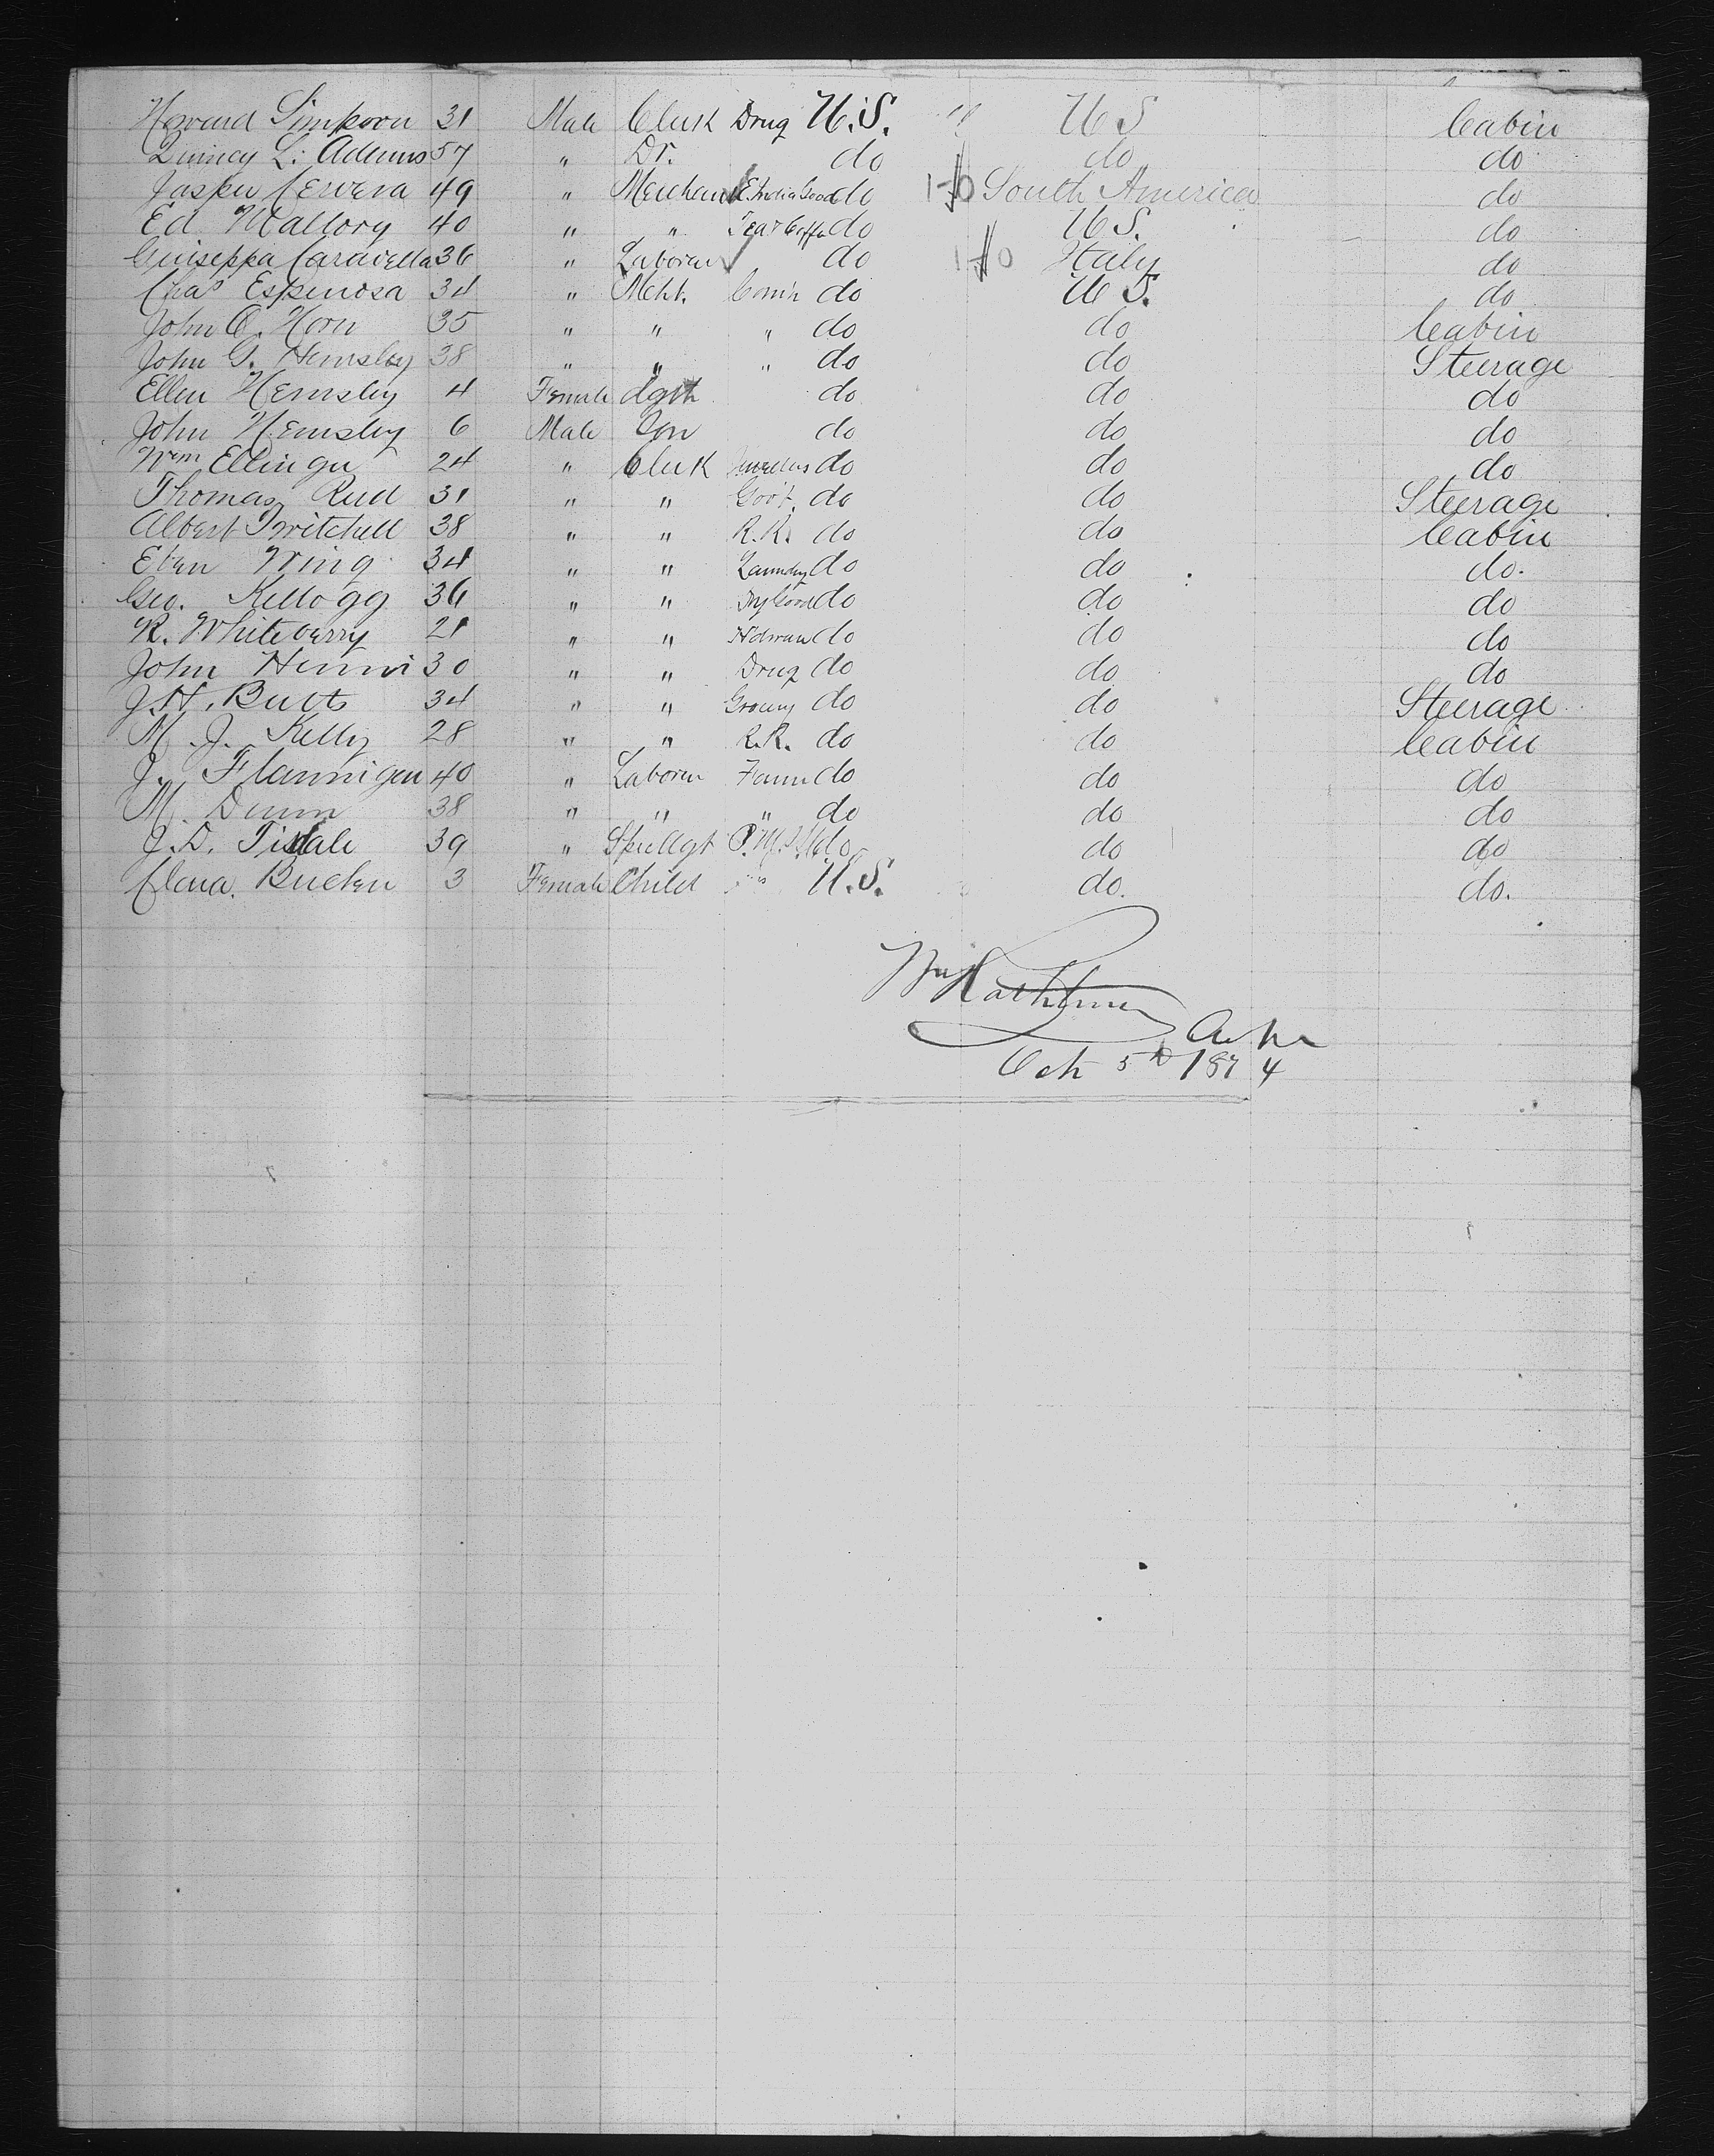 Howard Simpson 31 Male Clerk Drug U.S. " U S Cabin
Quincy L. Adams 57 " Dr. do do do
Jasper Cervera 49 " Merchant E. India Goods do South America do
Ed Mallory 40 " " Tea & Coffee do U S. do
Guiseppa Caravella 36 " Laborer do Italy do
Chas Espinosa 34 " Mcht. Com'n do U S. do
John C. Horn 35 " " " do do Cabin
John G. Hemsley 38 " " " do do Steerage
Ellen Hemsley 4 Female dgtr do do do
John Hemsley 6 Male Son do do do
Wm Ellinger 24 " Clerk Jewellers do do do
Thomas Reed 31 " " Gov't. do do Steerage
Albert Twitchell 38 " " R.R. do do Cabin
Eben Wing 34 " " Laundry do do do.
Geo. Kellogg 36 " " Dry Goods do do do
R. Whiteberry 21 " " Hdware do do do
John Hennri 30 " " Drug do do do
J.H. Butts 34 " " Grocery do do Steerage
M. J. Kelly 28 " " R.R. do do Cabin
J. Flannigan 40 " Laborer Farm do do do
M. Dunn 38 " " " do do do
J.D. Tisdale 39 " Spcl Agt P.M.S.S. do do do
Clara Bucken 3 Female Child U.S. do. do.
Oct 5th 1874